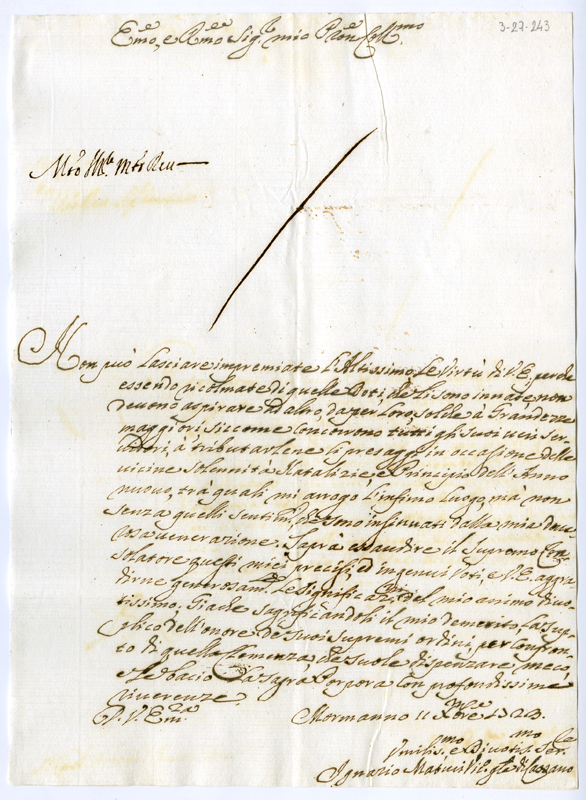 3-27-243
Emo, e Rmo Sig.r mio Pron Coll.mo
Non può lasciare impremiate l'Altissimo le Virtù di V.E., perche
essendo ricolmate di quelle Doti, che li sono innate non
devono aspirare ad altro, da per loro solo che à Grandezze
maggiori. Siccome concorrono tutti gli suoi veri ser-
vitori, à tributarlene li presaggi in occasione delle
vicine Solennità Natalizie, e Principio dell'Anno
nuovo, trà quali mi arrogo l'infimo luogo, ma non
senza quelli sentim.ti, che sono insinuati dalla mia
venerazione. Saprà esaudire il Supremo Con-
solatore questi miei precisi, ed ingenui voti, e V.E. aggra-
dirne generosam.te le significa.ni del mio animo divo-
tissimo. Già che suggettandoli il mio demerito, la sup-
plico dell'onore de suoi supremi ordini, per
di quella Clemenza, che suole dispenzare meco,
e le bacio la Sagra Porpora con profondissime
riverenze.
D. V. Em.za Mormanno 11 Xbre 1723.
Umiliss.mo e Divotiss.mo Ser.
Ignazio